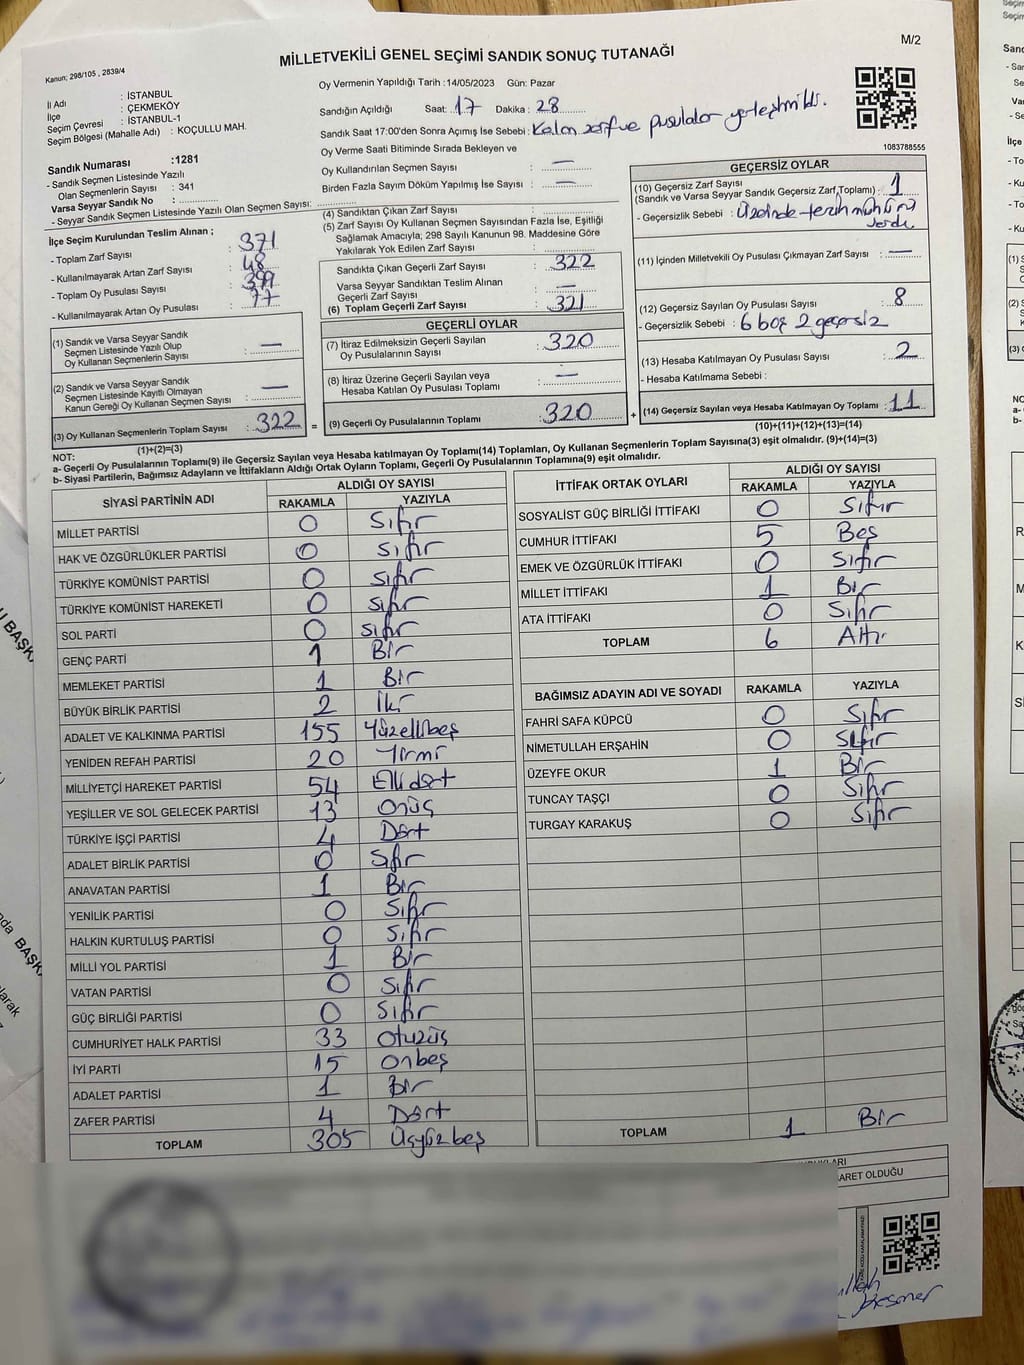 M/2
MİLLETVEKİLİ GENEL SEÇİMİ SANDIK SONUÇ TUTANAĞI
Kanun; 298/105 , 2839/4
İl Adı : İSTANBUL
İlçe : ÇEKMEKÖY
Seçim Çevresi : İSTANBUL-1
Seçim Bölgesi (Mahalle Adı) : KOÇULLU MAH.
Sandık Numarası :1281
- Sandık Seçmen Listesinde Yazılı
Olan Seçmenlerin Sayısı : 341
Varsa Seyyar Sandık No :
- Seyyar Sandık Seçmen Listesinde Yazılı Olan Seçmen Sayısı:
Oy Vermenin Yapıldığı Tarih :14/05/2023 Gün: Pazar
Sandığın Açıldığı Saat: 17 Dakika : 28
Sandık Saat 17:00'den Sonra Açımış İse Sebebi : Kalan zarf ve pusulalar yerleştirildi.
Oy Verme Saati Bitiminde Sırada Bekleyen ve
Oy Kullandırılan Seçmen Sayısı : —
Birden Fazla Sayım Döküm Yapılmış İse Sayısı : —
1083788555
İlçe Seçim Kurulundan Teslim Alınan ;
- Toplam Zarf Sayısı : 371
- Kullanılmayarak Artan Zarf Sayısı : 48
- Toplam Oy Pusulası Sayısı : 399
- Kullanılmayarak Artan Oy Pusulası : 77
(1) Sandık ve Varsa Seyyar Sandık
Seçmen Listesinde Yazılı Olup
Oy Kullanan Seçmenlerin Sayısı : —
(2) Sandık ve Varsa Seyyar Sandık
Seçmen Listesinde Kayıtlı Olmayan
Kanun Gereği Oy Kullanan Seçmen Sayısı : —
(3) Oy Kullanan Seçmenlerin Toplam Sayısı : 322
(1)+(2)=(3)
(4) Sandıktan Çıkan Zarf Sayısı :
(5) Zarf Sayısı Oy Kullanan Seçmen Sayısından Fazla İse, Eşitliği
Sağlamak Amacıyla; 298 Sayılı Kanunun 98. Maddesine Göre
Yakılarak Yok Edilen Zarf Sayısı :
Sandıkta Çıkan Geçerli Zarf Sayısı : 322
Varsa Seyyar Sandıktan Teslim Alınan
Geçerli Zarf Sayısı : —
(6) Toplam Geçerli Zarf Sayısı : 321
GEÇERLİ OYLAR
(7) İtiraz Edilmeksizin Geçerli Sayılan
Oy Pusulalarının Sayısı : 320
(8) İtiraz Üzerine Geçerli Sayılan veya
Hesaba Katılan Oy Pusulası Toplamı : —
= (9) Geçerli Oy Pusulalarının Toplamı : 320
GEÇERSİZ OYLAR
(10) Geçersiz Zarf Sayısı
(Sandık ve Varsa Seyyar Sandık Geçersiz Zarf Toplamı) : 1
- Geçersizlik Sebebi : Üzerinde tercih mührü
(11) İçinden Milletvekili Oy Pusulası Çıkmayan Zarf Sayısı : —
(12) Geçersiz Sayılan Oy Pusulası Sayısı : 8
- Geçersizlik Sebebi : 6 boş 2 geçersiz
(13) Hesaba Katılmayan Oy Pusulası Sayısı : 2
- Hesaba Katılmama Sebebi :
+ (14) Geçersiz Sayılan veya Hesaba Katılmayan Oy Toplamı : 11
(10)+(11)+(12)+(13)=(14)
NOT:
a- Geçerli Oy Pusulalarının Toplamı(9) ile Geçersiz Sayılan veya Hesaba Katılmayan Oy Toplamı(14) Toplamları, Oy Kullanan Seçmenlerin Toplam Sayısına(3) eşit olmalıdır. (9)+(14)=(3)
b- Siyasi Partilerin, Bağımsız Adayların ve İttifakların Aldığı Ortak Oyların Toplamı, Geçerli Oy Pusulalarının Toplamına(9) eşit olmalıdır.
SİYASİ PARTİNİN ADI ALDIĞI OY SAYISI
RAKAMLA YAZIYLA
MİLLET PARTİSİ 0 Sıfır
HAK VE ÖZGÜRLÜKLER PARTİSİ 0 Sıfır
TÜRKİYE KOMÜNİST PARTİSİ 0 Sıfır
TÜRKİYE KOMÜNİST HAREKETİ 0 Sıfır
SOL PARTİ 0 Sıfır
GENÇ PARTİ 1 Bir
MEMLEKET PARTİSİ 1 Bir
BÜYÜK BİRLİK PARTİSİ 2 İki
ADALET VE KALKINMA PARTİSİ 155 Yüzellibeş
YENİDEN REFAH PARTİSİ 20 Yirmi
MİLLİYETÇİ HAREKET PARTİSİ 54 Ellidört
YEŞİLLER VE SOL GELECEK PARTİSİ 13 Onüç
TÜRKİYE İŞÇİ PARTİSİ 4 Dört
ADALET BİRLİK PARTİSİ 0 Sıfır
ANAVATAN PARTİSİ 1 Bir
YENİLİK PARTİSİ 0 Sıfır
HALKIN KURTULUŞ PARTİSİ 0 Sıfır
MİLLİ YOL PARTİSİ 1 Bir
VATAN PARTİSİ 0 Sıfır
GÜÇ BİRLİĞİ PARTİSİ 0 Sıfır
CUMHURİYET HALK PARTİSİ 33 Otuzüç
İYİ PARTİ 15 Onbeş
ADALET PARTİSİ 1 Bir
ZAFER PARTİSİ 4 Dört
TOPLAM 305 Üçyüzbeş
İTTİFAK ORTAK OYLARI ALDIĞI OY SAYISI
RAKAMLA YAZIYLA
SOSYALİST GÜÇ BİRLİĞİ İTTİFAKI 0 Sıfır
CUMHUR İTTİFAKI 5 Beş
EMEK VE ÖZGÜRLÜK İTTİFAKI 0 Sıfır
MİLLET İTTİFAKI 1 Bir
ATA İTTİFAKI 0 Sıfır
TOPLAM 6 Altı
BAĞIMSIZ ADAYIN ADI VE SOYADI RAKAMLA YAZIYLA
FAHRİ SAFA KÜPCÜ 0 Sıfır
NİMETULLAH ERŞAHİN 0 Sıfır
ÜZEYFE OKUR 1 Bir
TUNCAY TAŞÇI 0 Sıfır
TURGAY KARAKUŞ 0 Sıfır
TOPLAM 1 Bir
ARET OLDUĞU